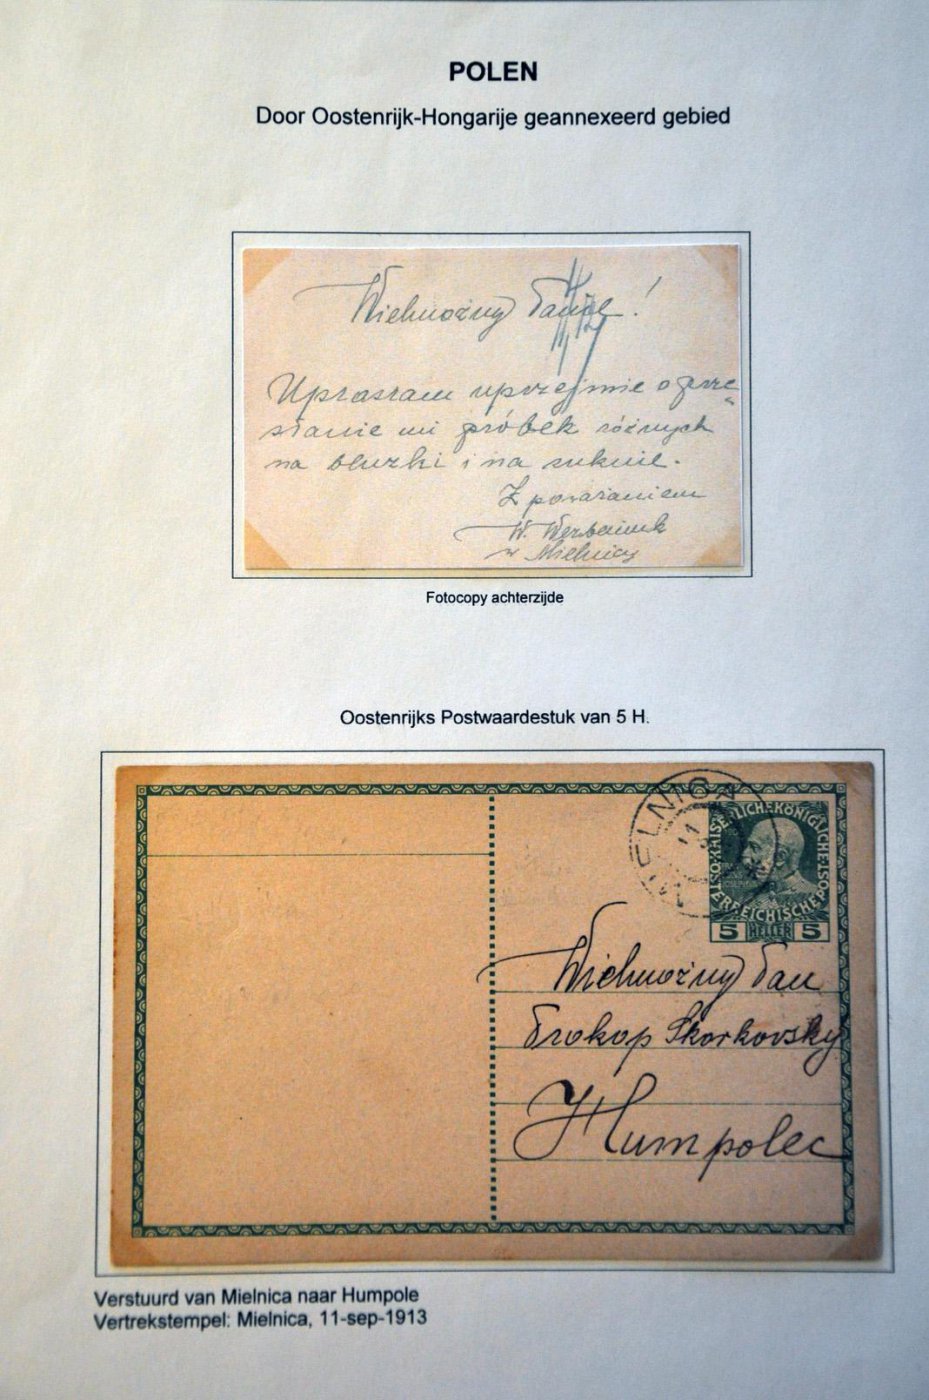 POLEN
Door Oostenrijk-Hongarije geannexeerd gebied
Wielmożny Panie!
Upraszam uprzejmie o prze=
słanie mi próbek różnych
na bluzki i na suknie.
Z poważaniem
W.
w Mielnicy
Fotocopy achterzijde
Oostenrijks Postwaardestuk van 5 H.
MIELNICA
11
KAISERLICHE·KÖNIGLICHE·ÖSTERREICHISCHE·POST
5 HELLER 5
Wielmożny Pan
Prokop Skorkovský
Humpolec
Verstuurd van Mielnica naar Humpole
Vertrekstempel: Mielnica, 11-sep-1913